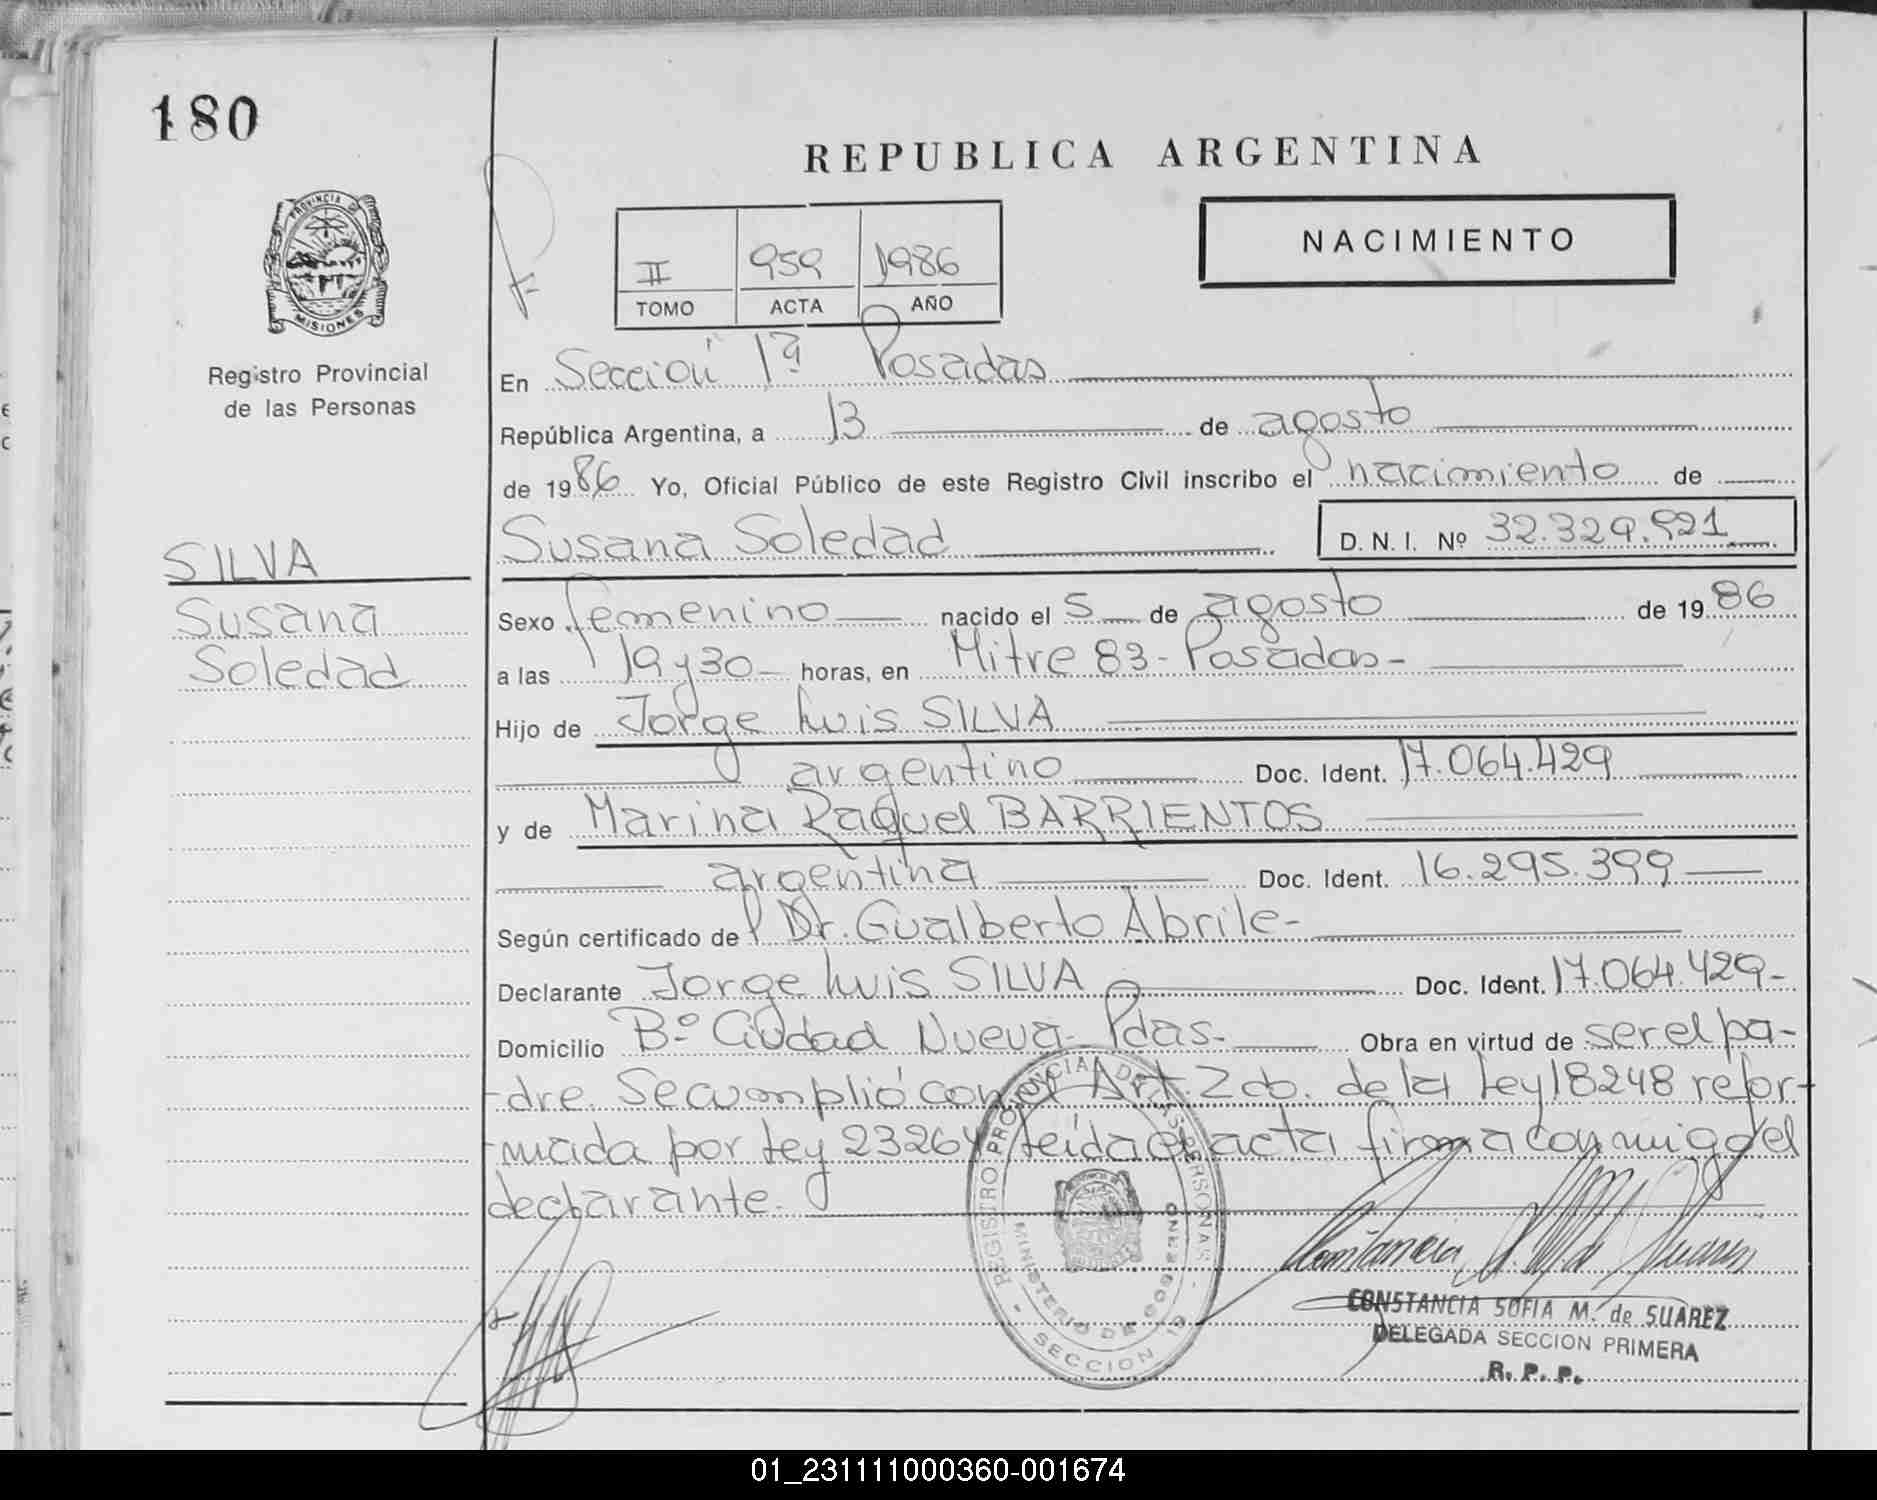 180
REPUBLICA ARGENTINA
PROVINCIA DE
MISIONES
Registro Provincial
de las Personas
II 959 1986
TOMO ACTA AÑO
NACIMIENTO
En Sección 1ª Posadas
República Argentina, a 13 de agosto
de 1986 Yo, Oficial Público de este Registro Civil inscribo el nacimiento de
Susana Soledad D. N. I. Nº 32.329.921
SILVA
Susana
Soledad
Sexo femenino nacido el 5 de agosto de 1986
a las 19 y 30 - horas, en Mitre 83 - Posadas -
Hijo de Jorge Luis SILVA
argentino Doc. Ident. 17.064.429
y de Marina Raquel BARRIENTOS
argentina Doc. Ident. 16.295.399
Según certificado de Dr. Gualberto Abrile -
Declarante Jorge Luis SILVA Doc. Ident. 17.064.429 -
Domicilio Bº Ciudad Nueva - Pdas - Obra en virtud de ser el pa-
-dre. Se cumplió con el Art. 2 de la Ley 18248 refor-
-mada por Ley 23264 Leída el acta firma conmigo el
declarante.
REGISTRO PROVINCIAL DE LAS PERSONAS
MINISTERIO DE GOBIERNO
SECCION 1ª
CONSTANCIA SOFIA M. de SUAREZ
DELEGADA SECCION PRIMERA
R. P. P.
01_231111000360-001674